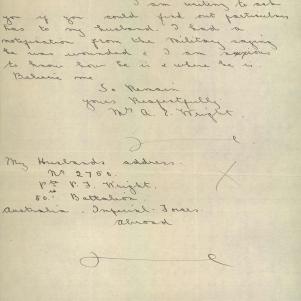 I am writing to ask
you if you could find out particulars
has to my husband. I had a
notification from the Military saying
he was wounded & I am anxious
to know how he is & where he is
Believe me
To Remain
yours Respectfully
Mrs A. E. Wright
My Husbands address.
No 2750.
Pte P. F. Wright.
50th Battalion
Australia. Imperial Forces.
Abroad